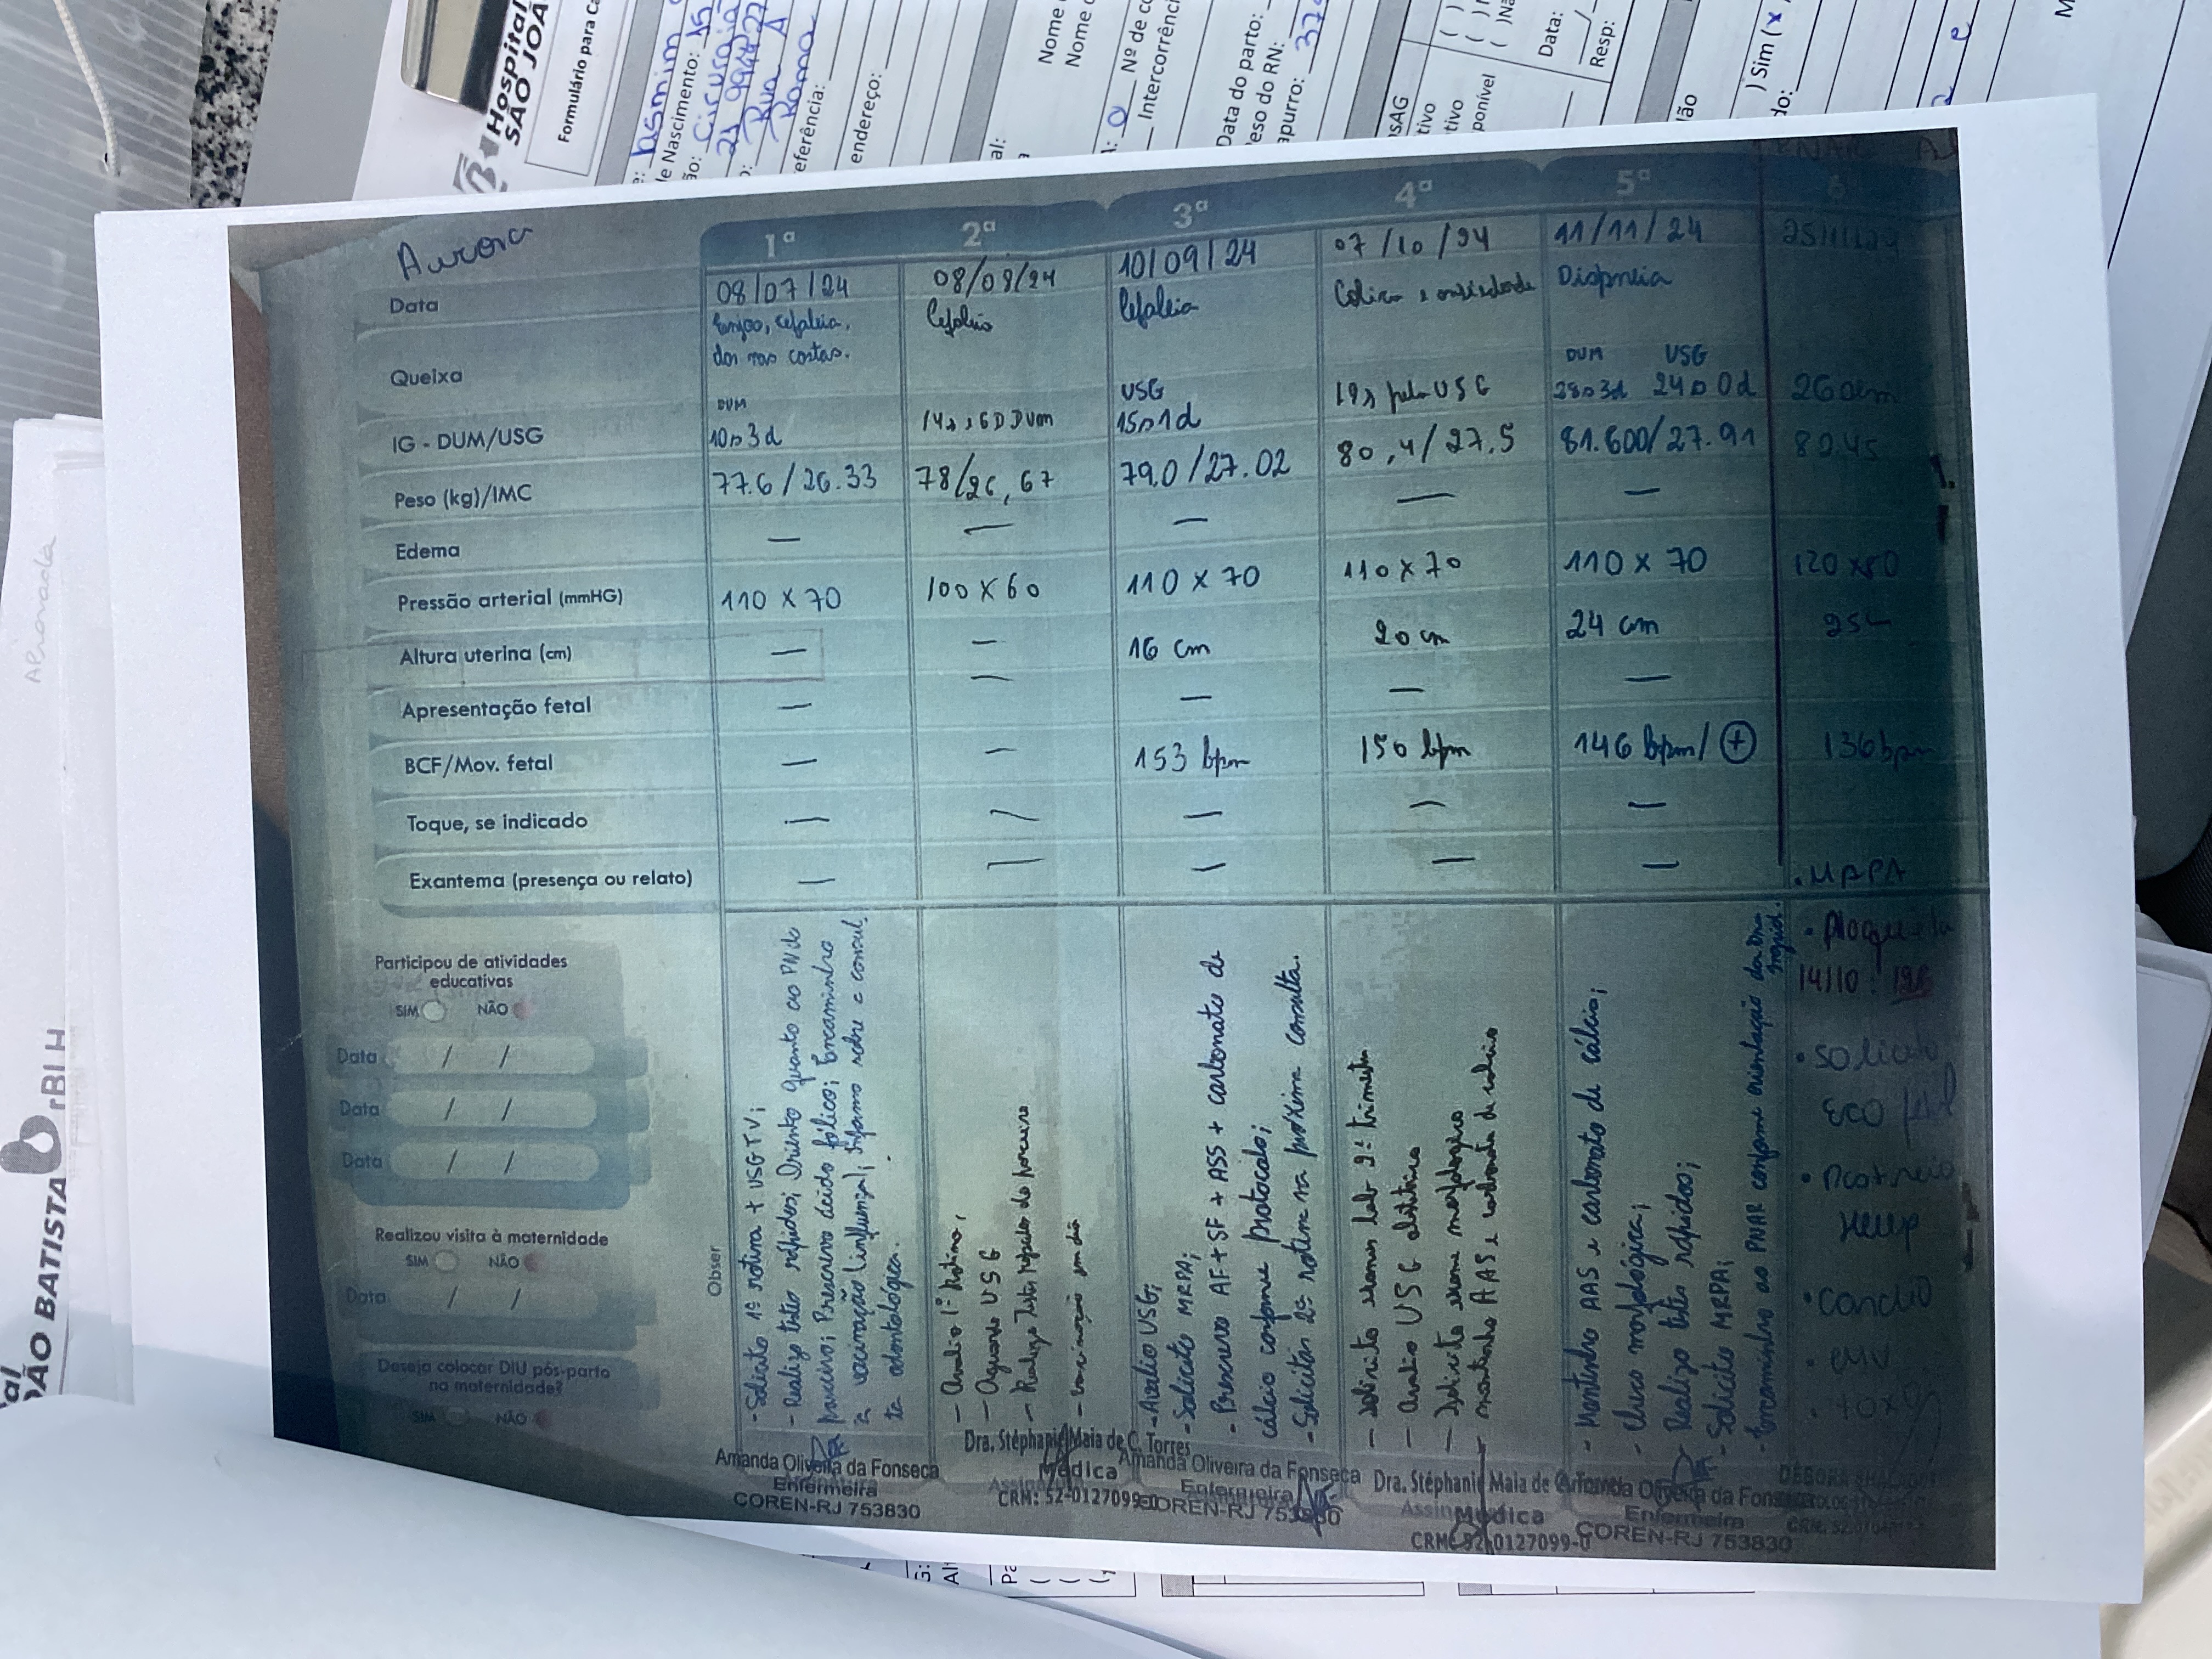 Hospital
SÃO JOÃ
Formulário para Ca
de Nascimento: 15
Rua A
Roma
eferência:
endereço:
Nome
Nome
Nº de co
Intercorrênci
Data do parto:
eso do RN:
apurro: 37
Data:
Resp:
) Sim (x
do:
Aurora
1ª 2ª 3ª 4ª 5ª
Data 08/07/24 08/08/24 10/09/24 07/10/24 11/11/24
Queixa Enjoo, cefaleia, Cefaleia Cefaleia Colica e ansiedade Dispneia
dor nas costas.
DUM USG DUM USG
IG - DUM/USG 10s3d 14s e 6D DUM 15s1d 19s pela USG 28s3d 24s0d 26sem
Peso (kg)/IMC 77.6/26.33 78/26,67 79.0/27.02 80,4/27.5 81.600/27.91 82.45
Edema — — — — —
Pressão arterial (mmHG) 110 x 70 100 x 60 110 x 70 110 x 70 110 x 70 120 x 80
Altura uterina (cm) — — 16 cm 20 cm 24 cm
Apresentação fetal — — — — —
BCF/Mov. fetal — — 153 bpm 150 bpm 146 bpm/ + 136bpm
Toque, se indicado — — — — —
Exantema (presença ou relato) — — — — —
Participou de atividades
educativas
SIM NÃO
Data / /
Data / /
Data / /
Realizou visita à maternidade
SIM NÃO
Data / /
Deseja colocar DIU pós-parto
na maternidade?
SIM NÃO
Obser
- Solicito 1ª rotina + USGTV;
- Realizo testes rápidos; Oriento quanto ao PN do
parceiro; Prescrevo ácido fólico; Encaminho
à vacinação (influenza); Informo sobre a consul
ta odontológica.
- Avalio 1ª Rotina,
- Aguardo USG
- Realizo Testes rápidos do parceiro
- Avalio USG;
- Solicito MRPA;
- Prescrevo AF + SF + ASS + carbonato de
cálcio conforme protocolo;
- Solicitar 2ª rotina na próxima consulta.
- solicito exames lab 2º trimestre
- avalio USG obstétrico
- solicito exame morfológico
- mantenho AAS e carbonato de cálcio
- Mantenho AAS e carbonato de cálcio;
- Checo morfológica;
- Realizo testes rápidos;
- Solicito MRPA;
- Encaminho ao PNAR conforme orientação da Dra
Ingrid.
. MAPA
14/10:
• Solicito
Eco
Amanda Oliveira da Fonseca
Enfermeira
COREN-RJ 753830
Dra. Stéphanie Maia de C. Torres
Médica
CRM: 52-0127099-0
Amanda Oliveira da Fonseca
Enfermeira
COREN-RJ 753830
Dra. Stéphanie Maia de C. Torres
Médica
CRM: 52-0127099-0
Amanda Oliveira da Fonseca
Enfermeira
COREN-RJ 753830
DÉBORA
ÃO BATISTA